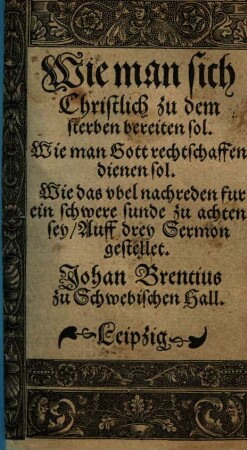 Wie man sich
Christlich zu dem
sterben bereiten sol.
Wie man Gott rechtschaffen
dienen sol.
Wie das vbel nachreden fur
ein schwere sunde zu achten
sey/Auff drey Sermon
gestellet.
Johan Brentius
zu Schwebischen Hall.
Leipzig